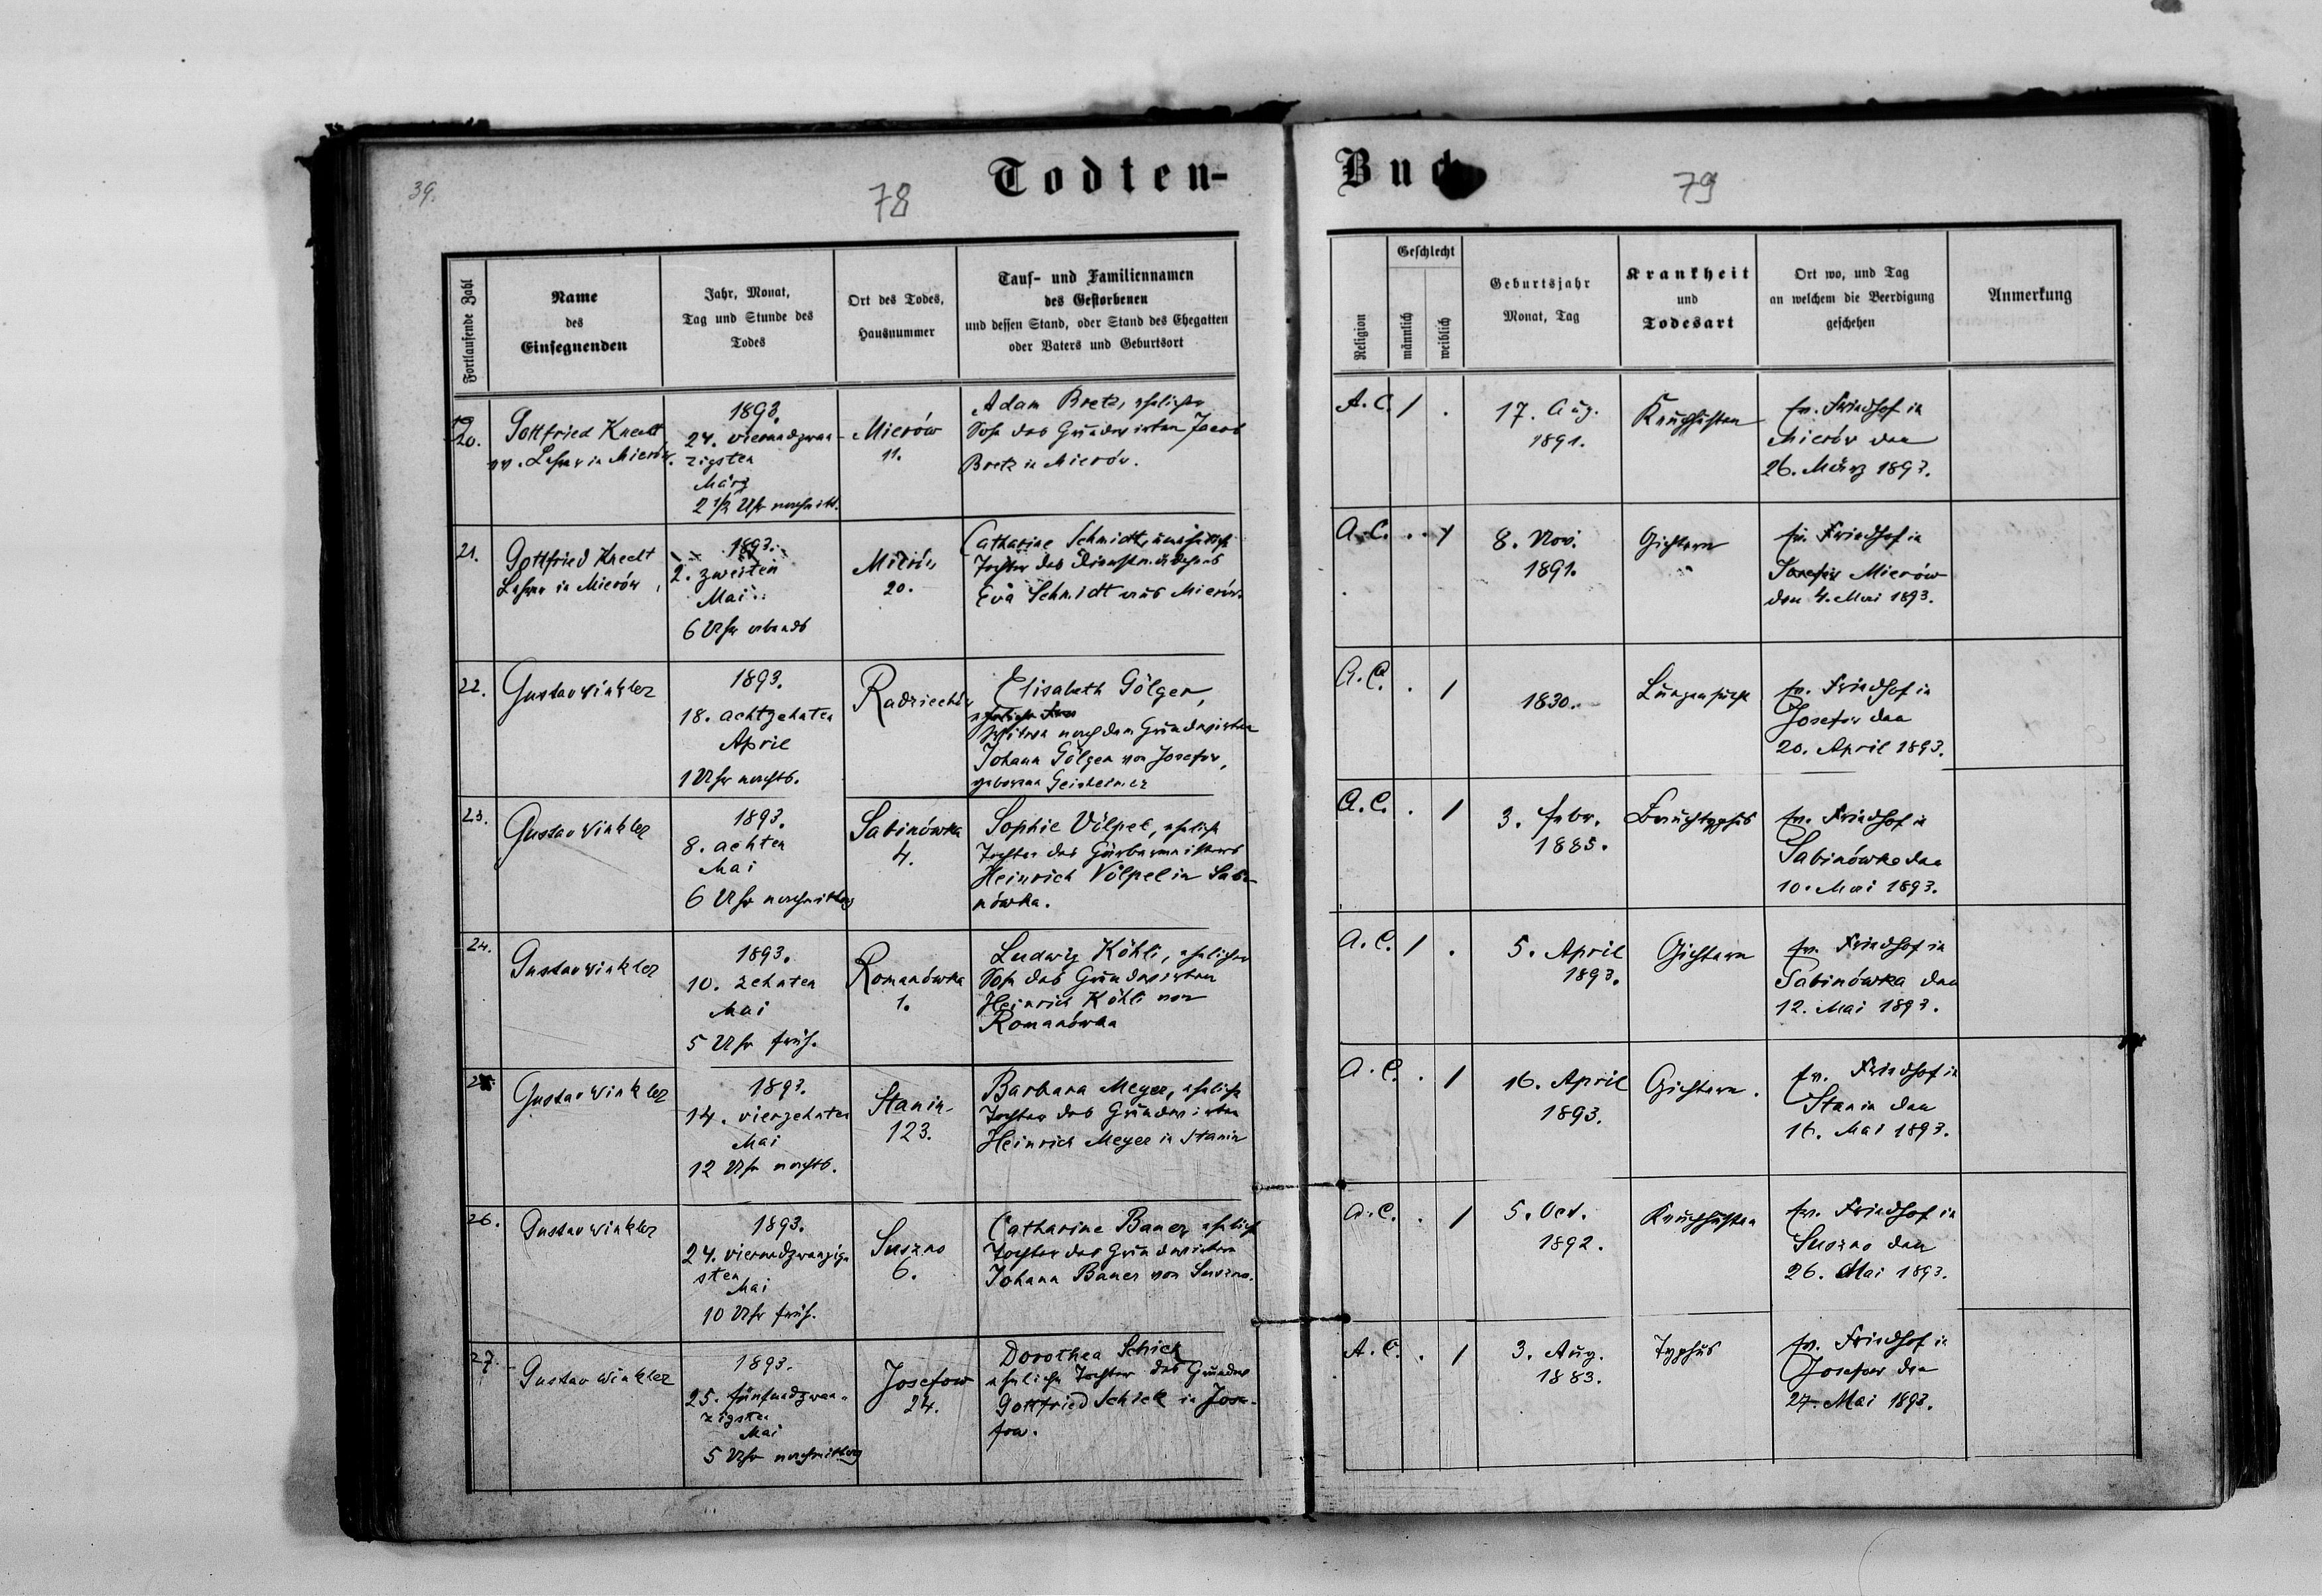 39.
78
Todten-
Fortlaufende Zahl
Name
des
Einsegnenden
Jahr, Monat,
Tag und Stunde des
Todes
Ort des Todes,
Hausnummer
Tauf- und Familiennamen
des Gestorbenen
und dessen Stand, oder Stand des Ehegatten
oder Vaters und Geburtsort
20.
Gottfried Knecht
ev. Lehrer in Mierów.
1893.
24. vierundzwan-
zigsten
März
2 1/2 Uhr nachmitt.
Mierów
11.
Adam Bretz, ehelicher
Sohn des Grundwirten Jacob
Bretz in Mierów.
21.
Gottfried Knecht
Lehrer in Mierów
1893.
2. zweiten
Mai
6 Uhr abends
Mierów
20.
Catharine Schmidt, uneheliche
Tochter des Dienstmädchens
Eva Schmidt aus Mierów.
22.
Gustav Winkler
1893.
18. achtzehnten
April
1 Uhr nachts.
Radziechów
Elisabeth Gölger,
Witwe nach dem Grundwirten
Johann Gölger von Josefow,
geborene Geisheimer
23.
Gustav Winkler
1893.
8. achten
Mai
6 Uhr nachmittag
Sabinówka
4.
Sophie Völpel, eheliche
Tochter des Gärbermeisters
Heinrich Völpel in Sabi-
nówka.
24.
Gustav Winkler
1893.
10. zehnten
Mai
5 Uhr früh.
Romanówka
1.
Ludwig Köhli, ehelicher
Sohn des Grundwirten
Heinrich Köhli von
Romanówka
25.
Gustav Winkler
1893.
14. vierzehnten
Mai
12 Uhr nachts.
Stanin
123.
Barbara Meyer, eheliche
Tochter des Grundwirten
Heinrich Meyer in Stanin
26.
Gustav Winkler
1893.
24. vierundzwanzig-
sten
Mai
10 Uhr früh.
Suszno
6.
Catharine Bauer eheliche
Tochter des Grundwirten
Johann Bauer von Suszno.
27.
Gustav Winkler
1893.
25. fünfundzwan-
zigsten
Mai
5 Uhr nachmittag
Josefow
24.
Dorothea Schick
eheliche Tochter des Grundw
Gottfried Schick in Jose-
fow.
Buch
79
Religion
Geschlecht
männlich
weiblich
Geburtsjahr
Monat, Tag
Krankheit
und
Todesart
Ort wo, und Tag
an welchem die Beerdigung
geschehen
Anmerkung
A.C. / .
17. Aug.
1891.
Keuchhusten
ev. Friedhof in
Mierów den
26. März 1893.
A.C. . /
8. Nov.
1891.
Gichtern
ev. Friedhof in
Josefow Mierów
den 4. Mai 1893.
A.C. . /
1830.
Lungensucht
ev. Friedhof in
Josefow den
20. April 1893.
A.C. . /
3. Febr.
1885.
Bauchtyphus
ev. Friedhof in
Sabinówka den
10. Mai 1893.
A.C. / .
5. April
1893.
Gichtern
ev. Friedhof in
Sabinówka den
12. Mai 1893.
A.C. . /
16. April
1893.
Gichtern.
ev. Friedhof in
Stanin den
16. Mai 1893.
A.C. . /
5. Oct.
1892.
Keuchhusten
ev. Friedhof in
Suszno den
26. Mai 1893.
A.C. . /
3. Aug.
1883.
Typhus
ev. Friedhof in
Josefow den
27. Mai 1893.